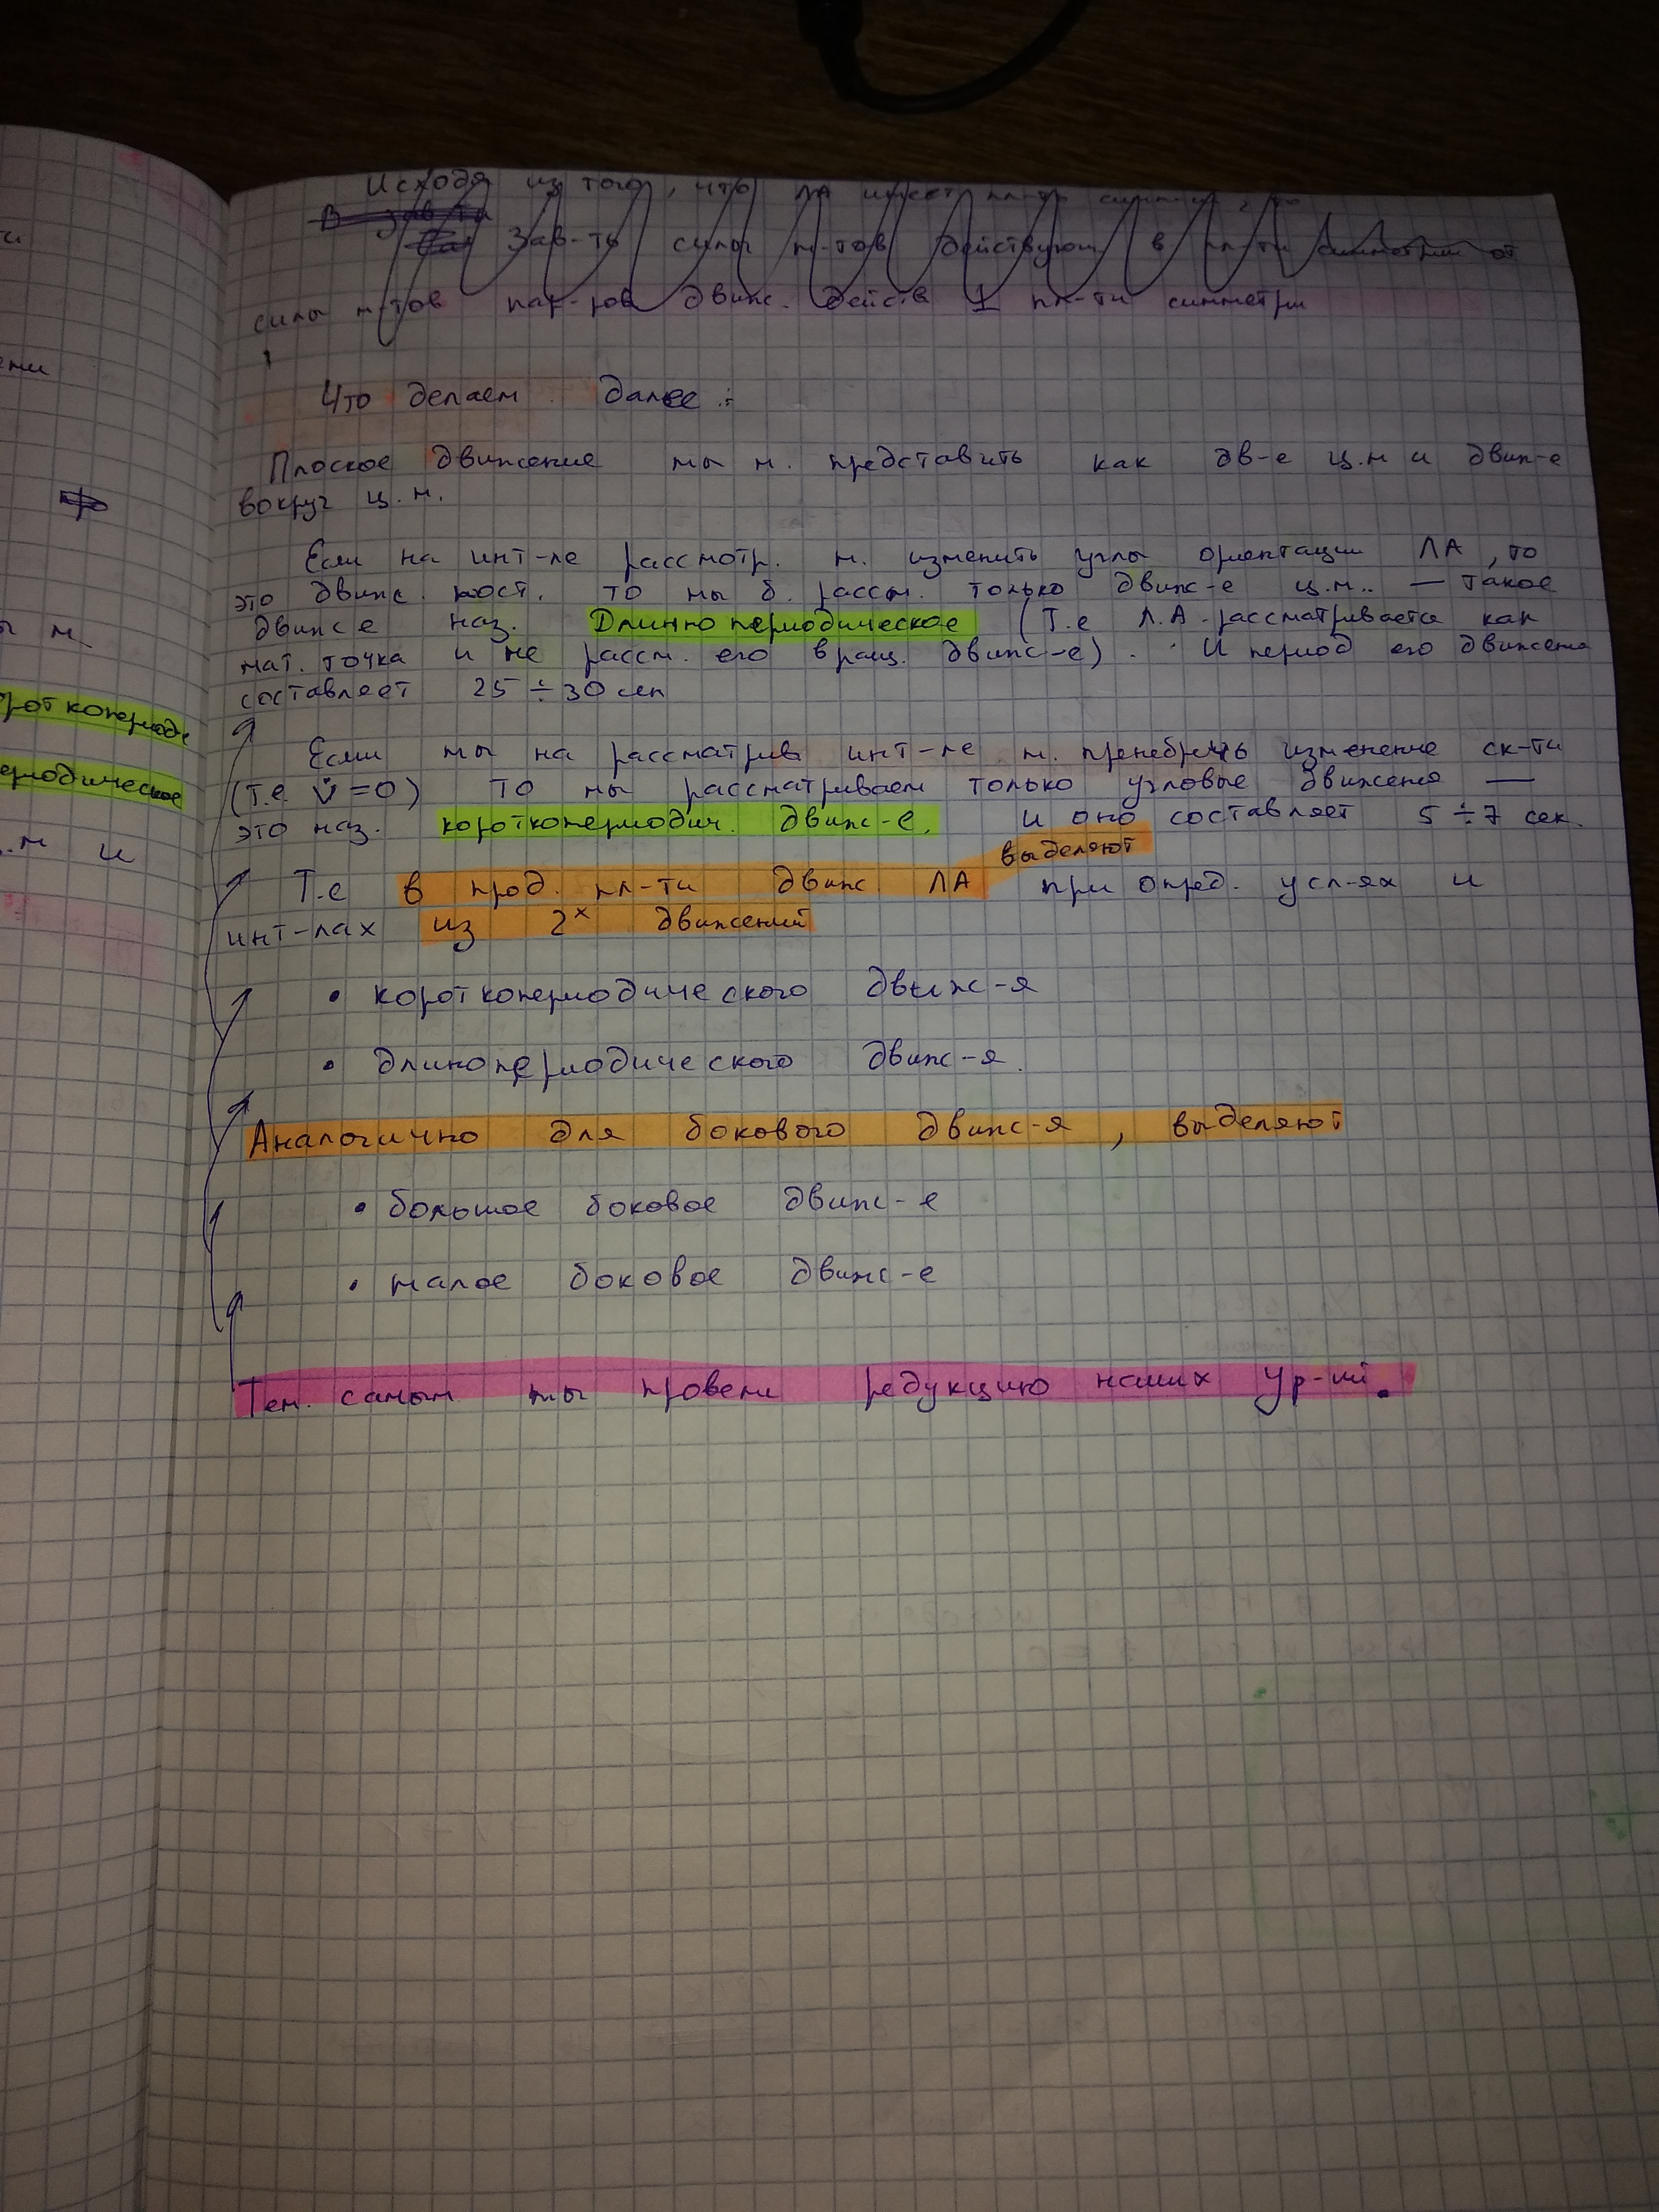 ти
ени
ы м
роткопериоди
ериодическое
.м и
Исходя из того, что ЛА имеет пл-ть
В зав-ти
Зав-ть силы м-тов действующ в пл-ти симметрии от
силы м-тов пар-ров движ. действ ⊥ пл-ти симметри
Что делаем далее :
Плоское движение мы м. представить как дв-е ц.м и движ-е
вокруг ц.м.
Если на инт-ле рассмотр. м. изменить углы ориентации ЛА, то
это движ. пост. то мы б. рассм. только движ-е ц.м. — такое
движ е наз. Длинно периодическое (Т.е Л.А. рассматривается как
мат. точка и не рассм. его вращ. движ-е). И период его движения
составляет 25 ÷ 30 сек
Если мы на рассматрив инт-ле м. пренебречь изменение ск-ти
(т.е. V̇ = 0) то мы рассматриваем только угловые движения —
это наз. короткопериодич. движ-е. и оно составляет 5 ÷ 7 сек.
выделяют
Т.е в прод. пл-ти движ ЛА при опред. усл-ях и
инт-лах из 2ˣ движений
• короткопериодического движ-я
• длинопериодического движ-я.
Аналогично для бокового движ-я, выделяют
• большое боковое движ-е
• малое боковое движ-е
Тем. самым мы провели редукцию наших ур-ий.